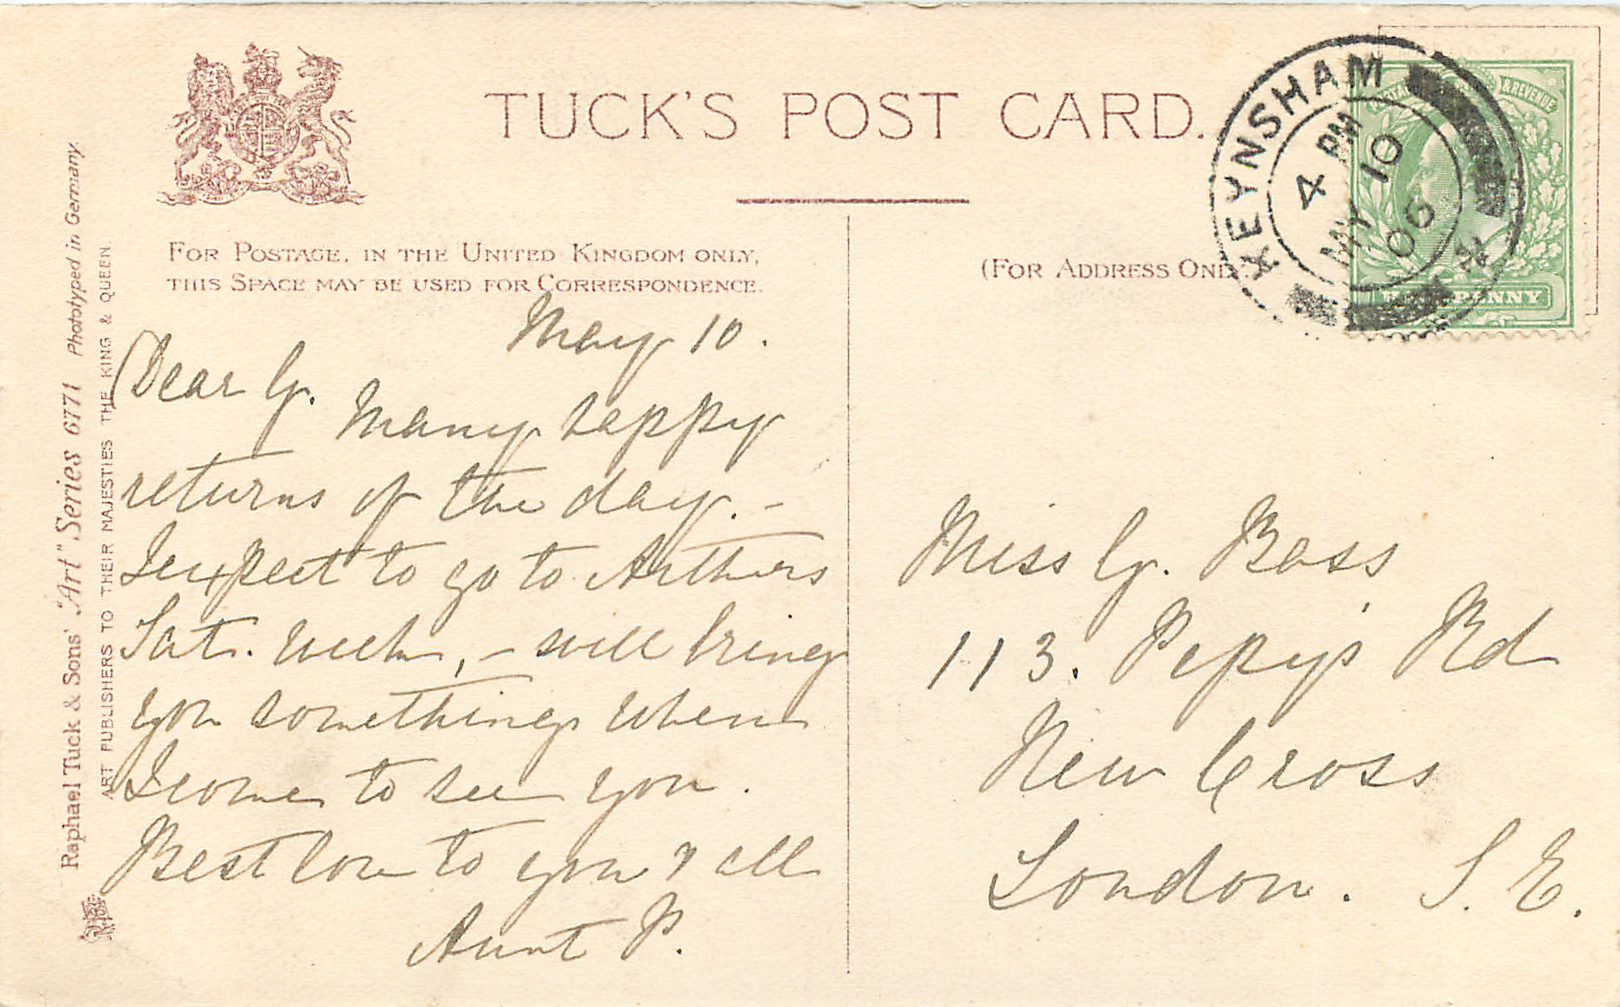 TUCK'S POST CARD.
FOR POSTAGE, IN THE UNITED KINGDOM ONLY,
THIS SPACE MAY BE USED FOR CORRESPONDENCE.
(FOR ADDRESS ONLY
KEYNSHAM
4 PM
MY 10
06
& REVENUE
PENNY
May 10.
Dear G. Many happy
returns of the day. –
I expect to go to Arthurs
Sat. week, – will bring
you something when
I come to see you.
Best love to you & all
Aunt P.
Miss G. Bass
113. Pepy's Rd
New Cross
London. S. E.
Raphael Tuck & Sons' "Art" Series 6771 Phototyped in Germany.
ART PUBLISHERS TO THEIR MAJESTIES THE KING & QUEEN